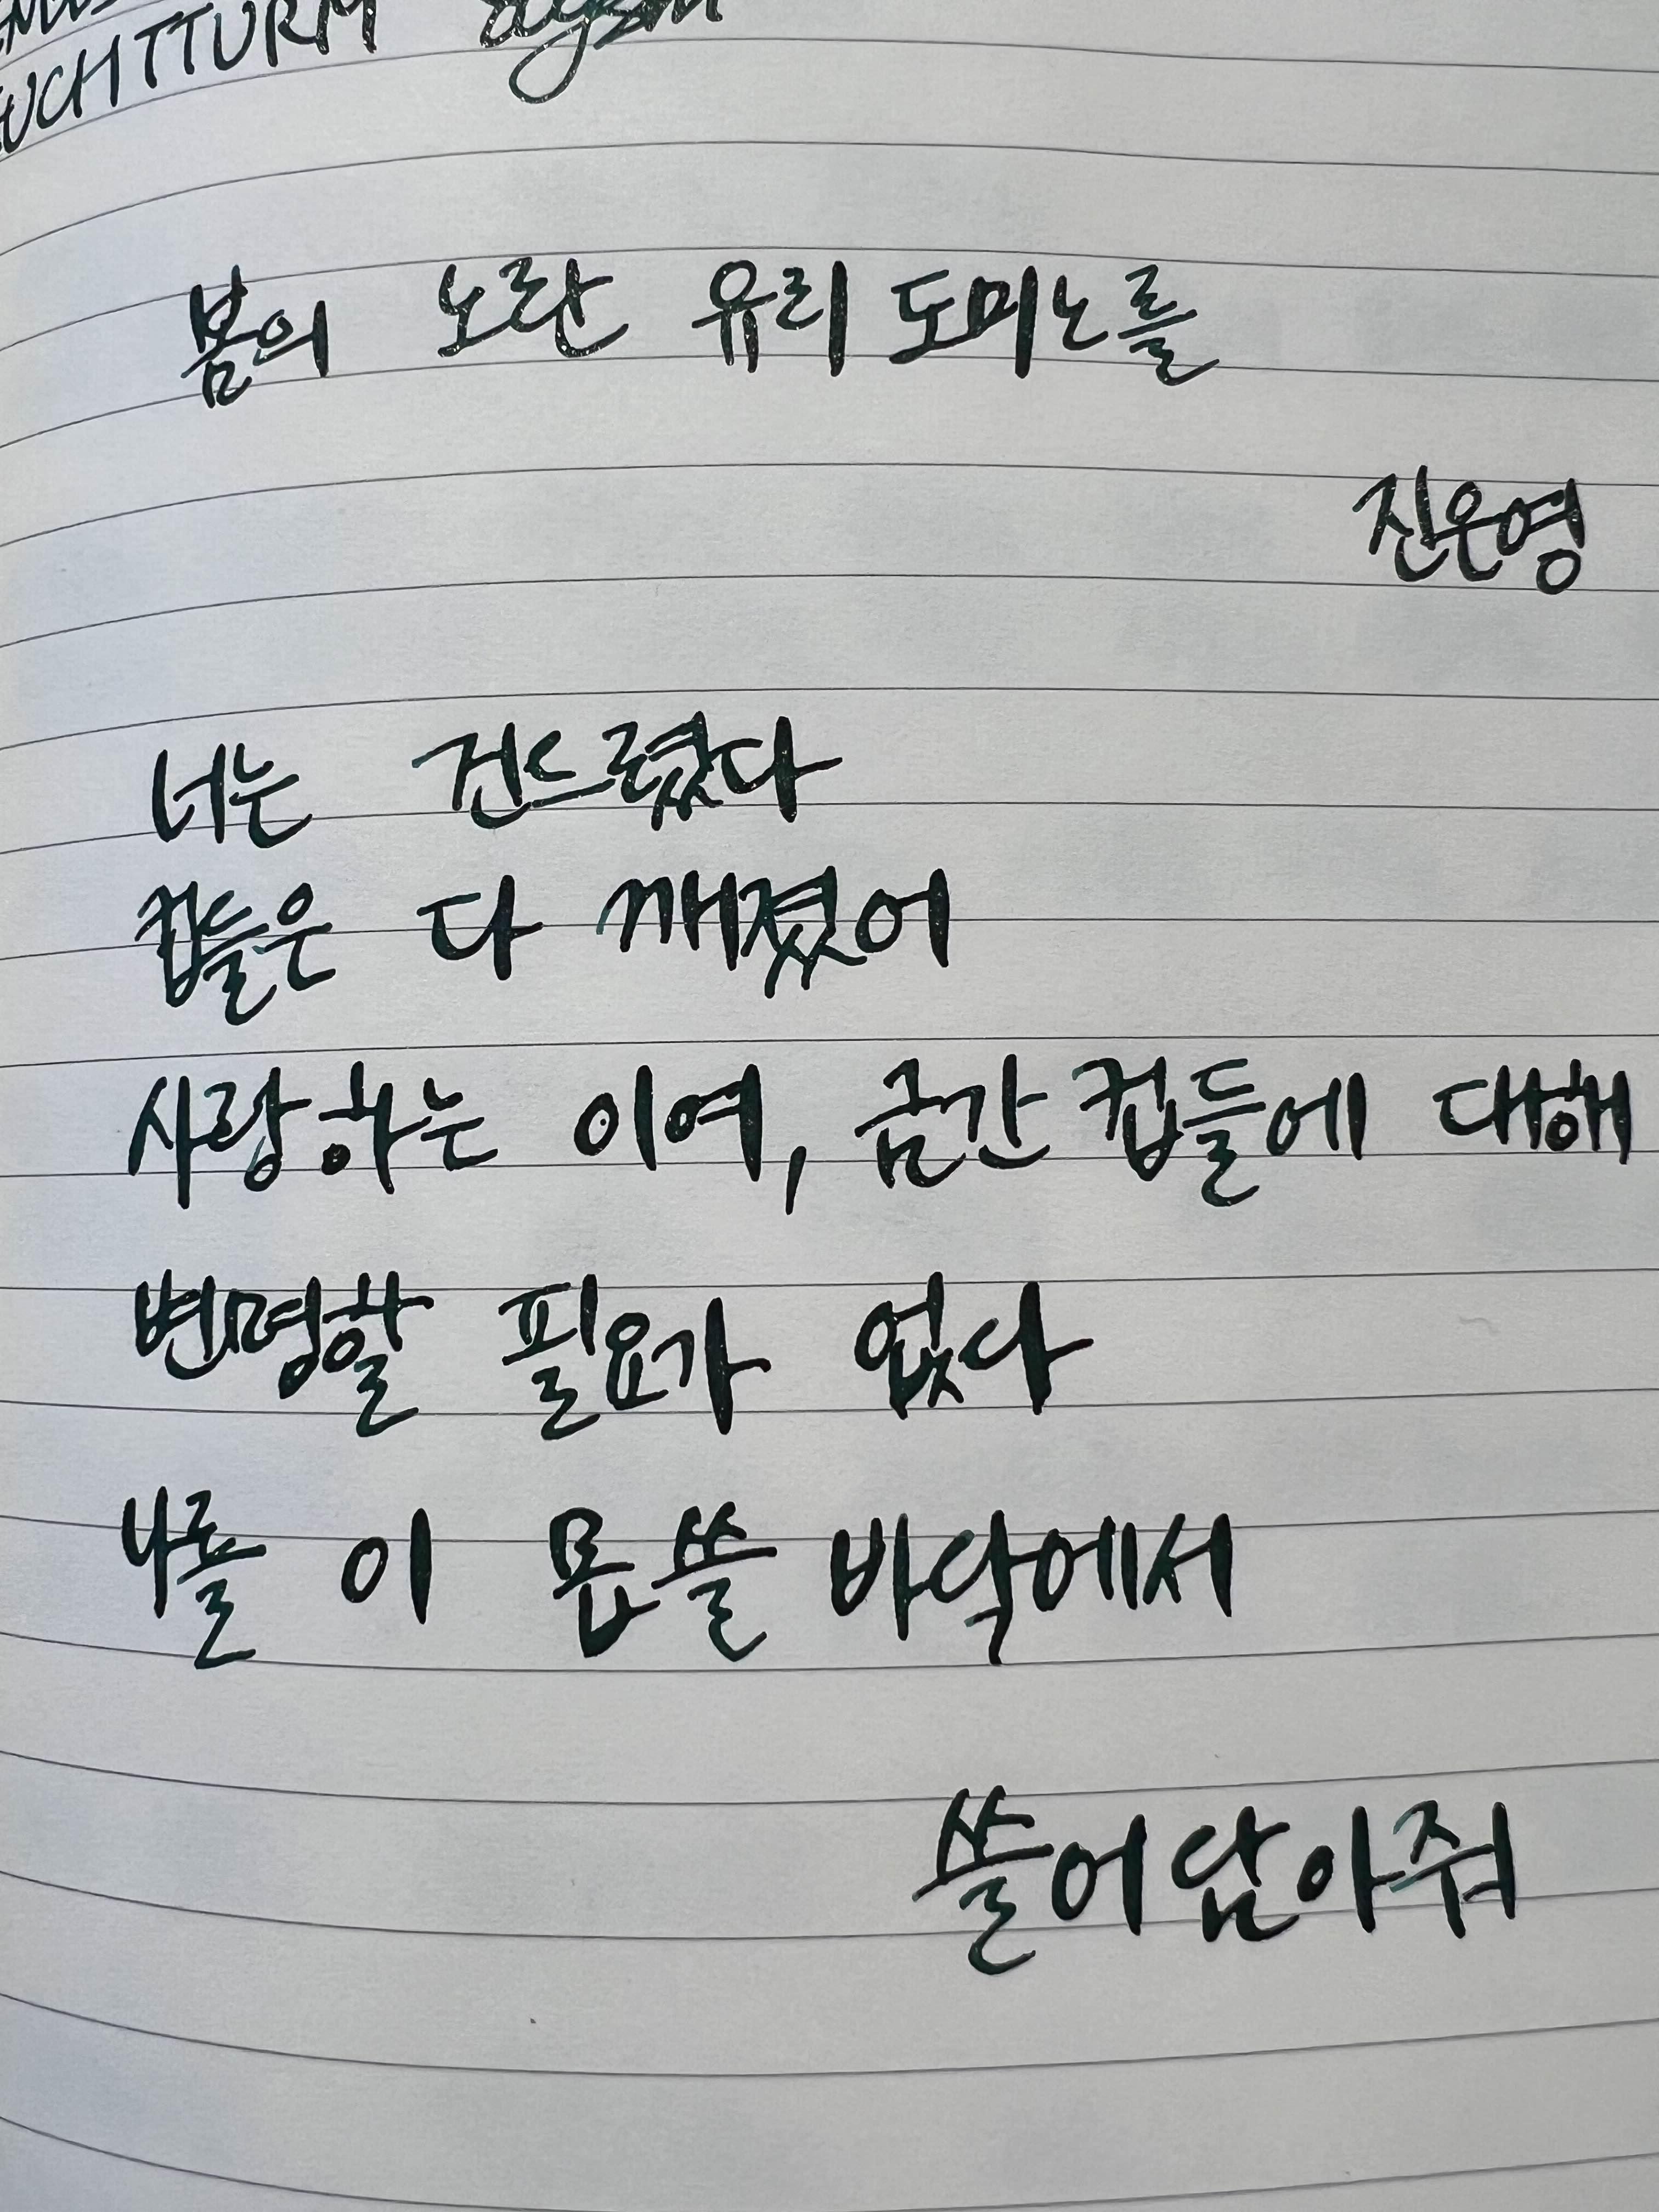 UCHTTURM
봄의 노란 유리 도미노를
진은영
너는 건드렸다
컵들은 다 깨졌어
사랑하는 이여, 금간 컵들에 대해
변명할 필요가 없다
나를 이 몹쓸 바닥에서
쓸어담아줘